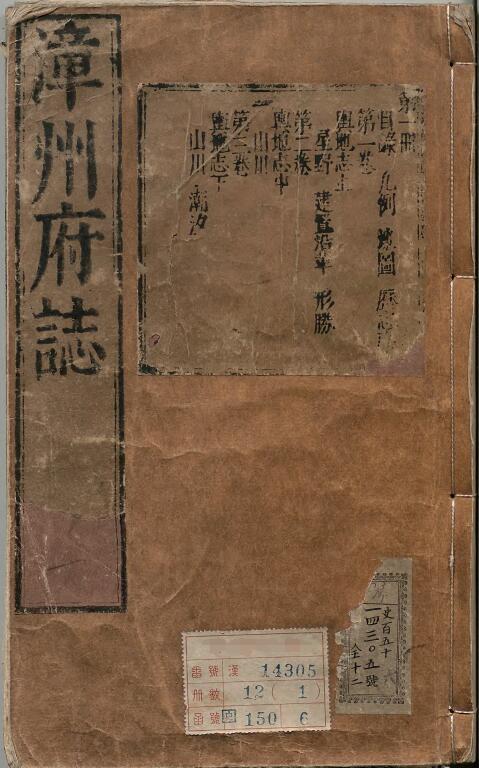 漳州府誌
第一冊
目錄 凡例 輿圖
第一卷
輿地志上
星野 建置沿革 形勝
第二卷
輿地志中
山川
第三卷
輿地志下
山川 潮汐
史百五十
一四三〇五號
全十二
番號 漢 14305
冊數 12 ( 1 )
函號 150 6